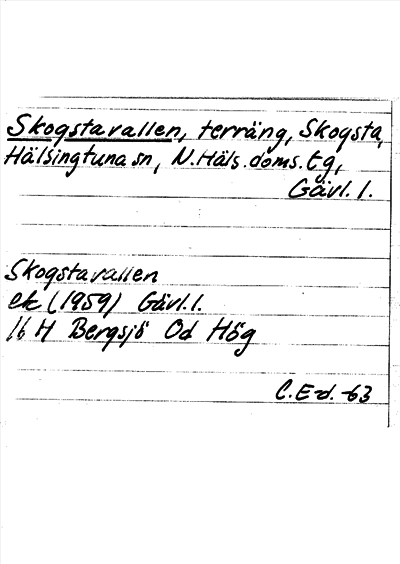 Skogstavallen, terräng, Skogsta,
Hälsingtuna sn, N.Häls.doms.tg,
Gävl.l.
Skogstavallen
ek (1959) Gävl.l.
16 H Bergsjö Od Hög
C.E-d.-63